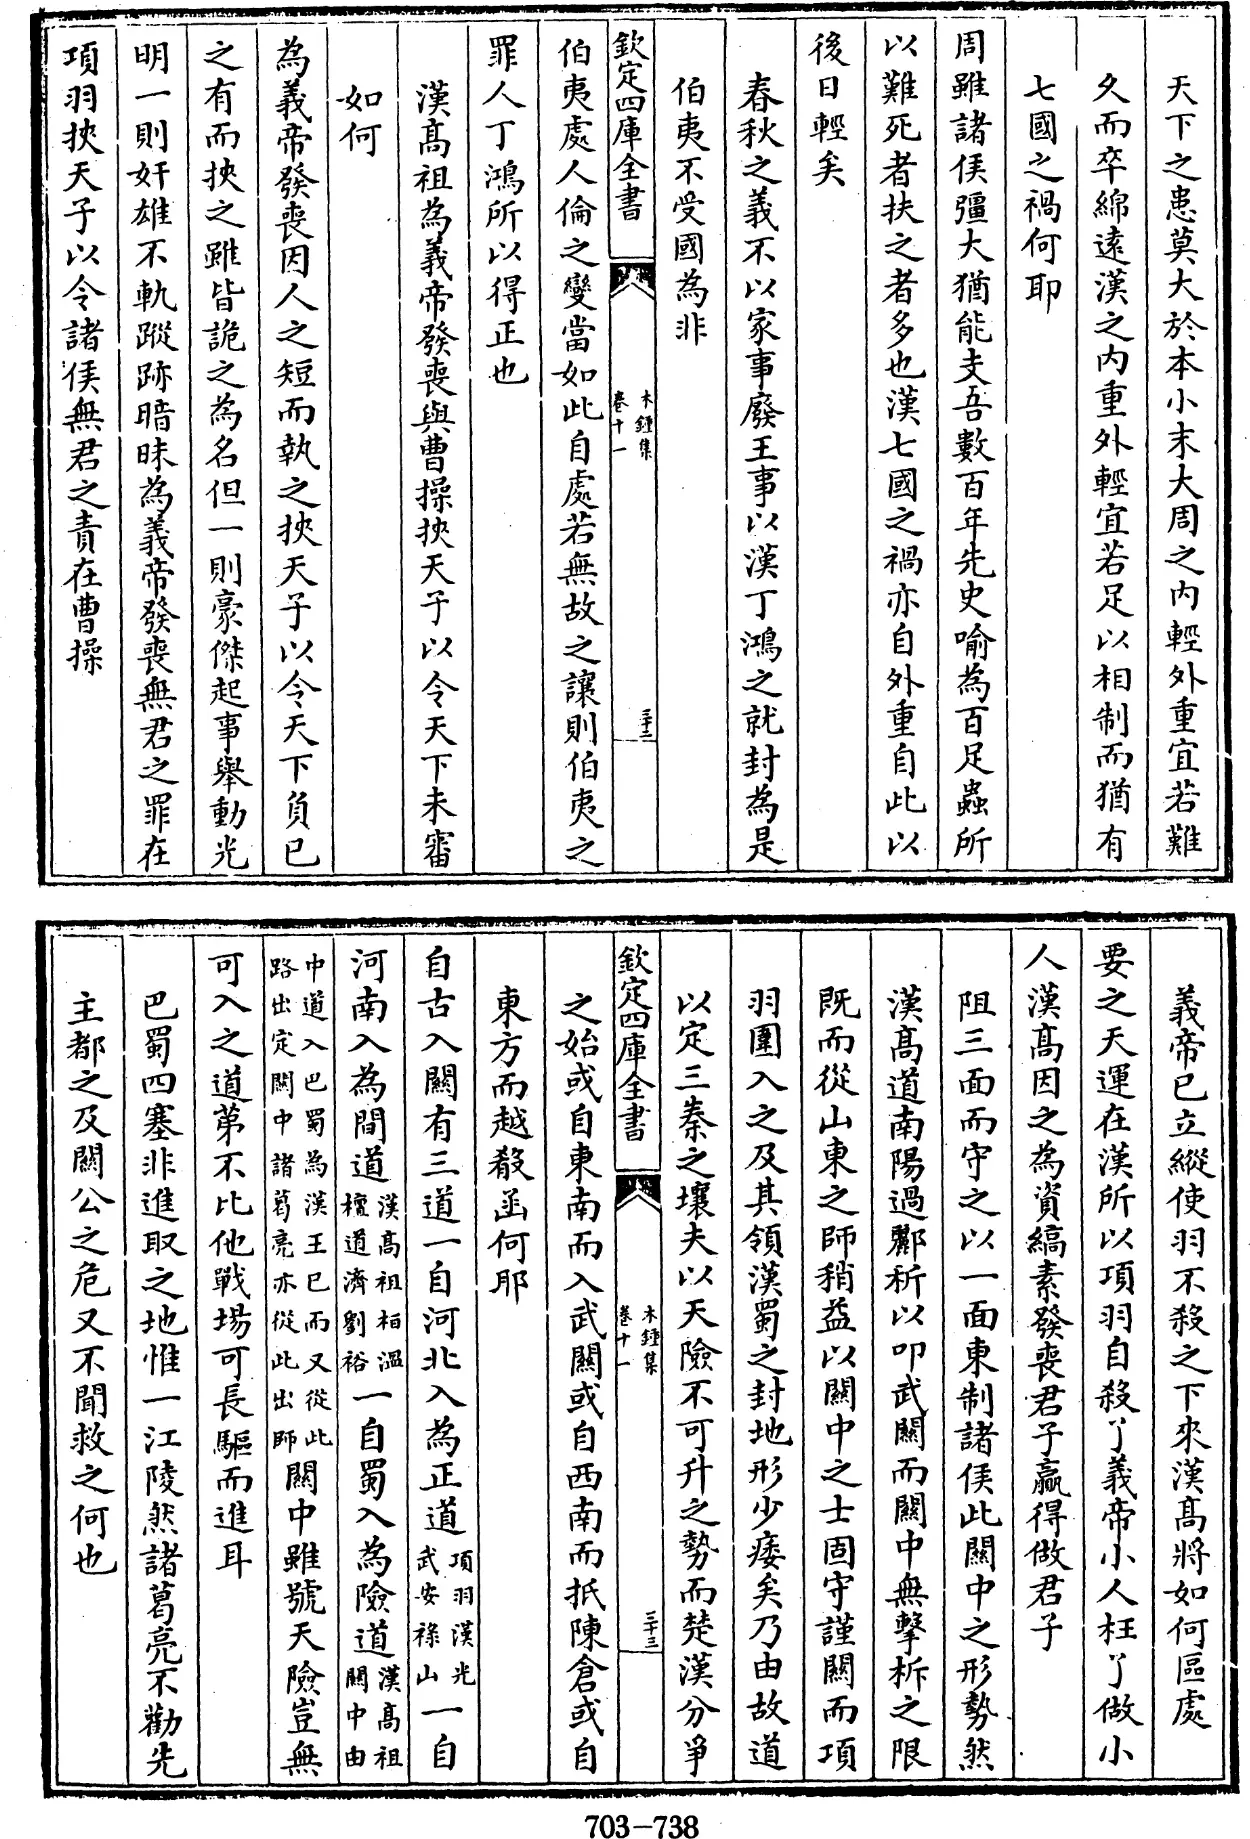 天下之患莫大於本小末大周之内輕外重宜若難
久而卒綿遠漢之内重外輕宜若足以相制而猶有
七國之禍何耶
周雖諸侯彊大猶能支吾數百年先史喻為百足蟲所
以難死者扶之者多也漢七國之禍亦自外重自此以
後日輕矣
春秋之義不以家事廢王事以漢丁鴻之就封為是
伯夷不受國為非
欽定四庫全書
木鍾集
卷十一
三十二
伯夷處人倫之變當如此自處若無故之讓則伯夷之
罪人丁鴻所以得正也
漢高祖為義帝發喪與曹操挾天子以令天下未審
如何
為義帝發喪因人之短而執之挾天子以令天下負已
之有而挾之雖皆詭之為名但一則豪傑起事舉動光
明一則奸雄不軌蹤跡暗昧為義帝發喪無君之罪在
項羽挾天子以令諸侯無君之責在曹操
義帝已立縱使羽不殺之下來漢高將如何區處
要之天運在漢所以項羽自殺了義帝小人枉了做小
人漢高因之為資縞素發喪君子贏得做君子
阻三面而守之以一面東制諸侯此關中之形勢然
漢高道南陽過酈析以叩武關而關中無擊柝之限
既而從山東之師稍益以關中之士固守謹關而項
羽圍入之及其領漢蜀之封地形少痿矣乃由故道
以定三秦之壤夫以天險不可升之勢而楚漢分爭
欽定四庫全書
木鍾集
卷十一
三十三
之始或自東南而入武關或自西南而抵陳倉或自
東方而越殽函何耶
自古入關有三道一自河北入為正道項羽漢光武安祿山一自
河南入為間道漢高祖桓溫檀道濟劉裕一自蜀入為險道漢高祖關中由
中道入巴蜀為漢王已而又從此路出定關中諸葛亮亦從此出師關中雖號天險豈無
可入之道第不比他戰場可長驅而進耳
巴蜀四塞非進取之地惟一江陵然諸葛亮不勸先
主都之及關公之危又不聞救之何也
703-738